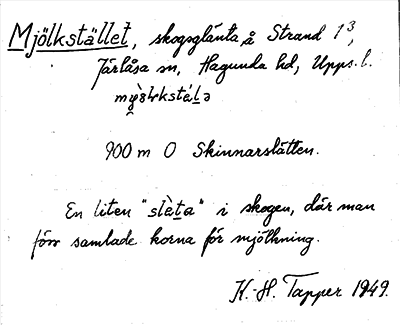 Mjölkstället, skogsglänta, å Strand 1³,
Järlåsa sn, Hagunda hd, Upps. l.
900 m O Skinnarslätten.
En liten "slèta" i skogen, där man
förr samlade korna för mjölkning.
K.-H. Tapper 1949.